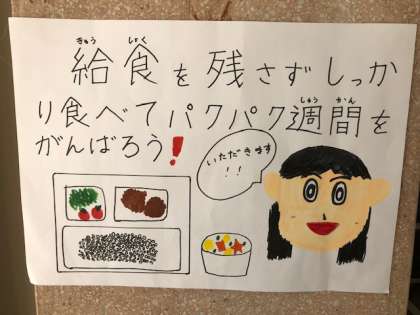 きゅう しょく
給食を残さずしっか
しゅう かん
り食べてパクパク週間を
がんばろう!
いただきます
!!